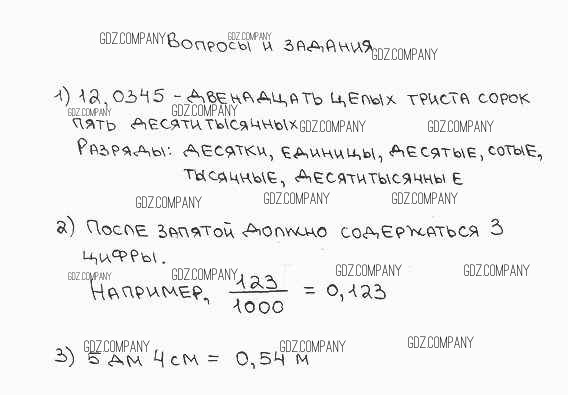 GDZ.COMPANY GDZ.COMPANY
Вопросы и задания
GDZ.COMPANY
1) 12,0345 - двенадцать целых триста сорок
GDZ.COMPANY GDZ.COMPANY
пять десятитысячных
GDZ.COMPANY GDZ.COMPANY
Разряды: десятки, единицы, десятые, сотые,
тысячные, десятитысячные
GDZ.COMPANY GDZ.COMPANY GDZ.COMPANY
2) После запятой должно содержаться 3
цифры.
GDZ.COMPANY GDZ.COMPANY GDZ.COMPANY GDZ.COMPANY
Например, 123/1000 = 0,123
GDZ.COMPANY GDZ.COMPANY GDZ.COMPANY
3) 5 дм 4 см = 0,54 м